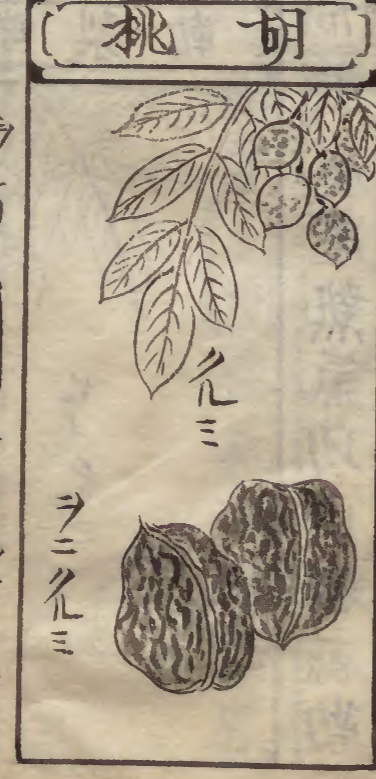 胡桃
クルミ
ヲニクルミ